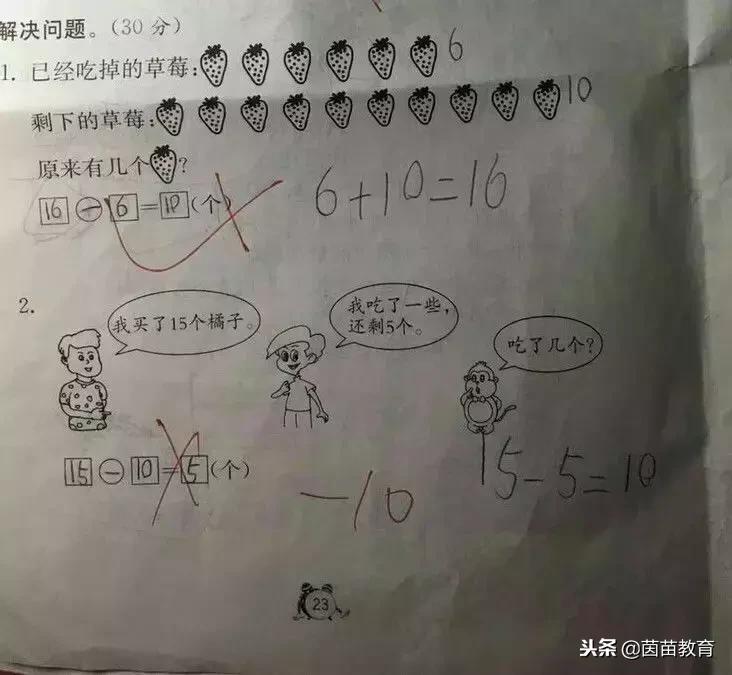 解决问题。(30分)
1. 已经吃掉的草莓: 6
剩下的草莓: 10
原来有几个 ?
16-6=10(个)
6+10=16
2.
我买了15个橘子。
我吃了一些,
还剩5个。
吃了几个?
15-10=5(个)
-10
15-5=10
23
头条@茵苗教育